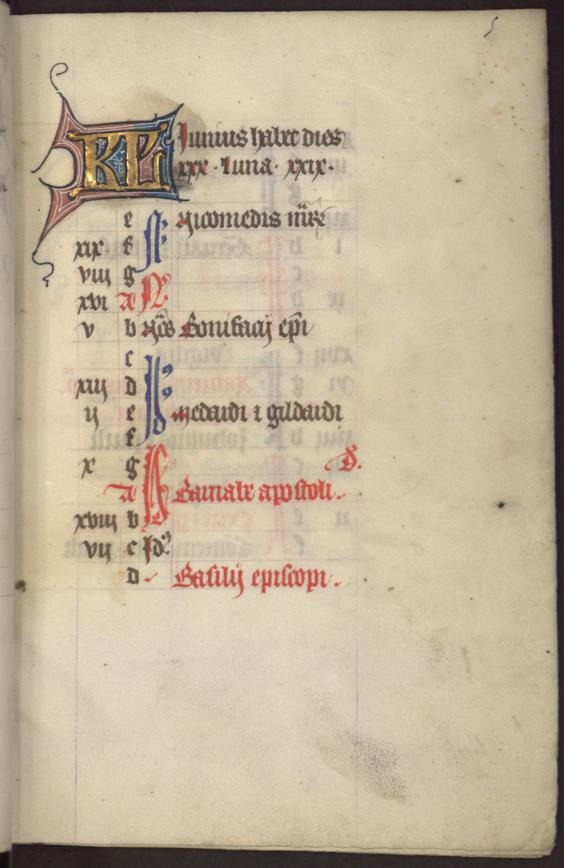 5
KL Junius habet dies
xxx · luna · xxix ·
e Nicomedis mr̄is
xix f
viij g
xvi A N
v b Nōs Bonifacij ep̄i
c
xiij d
ij e medardi ⁊ gildardi
f
x g
A Barnabe apostoli · d.
xviij b
vij c Jdꝰ
d Basilij episcopi ·